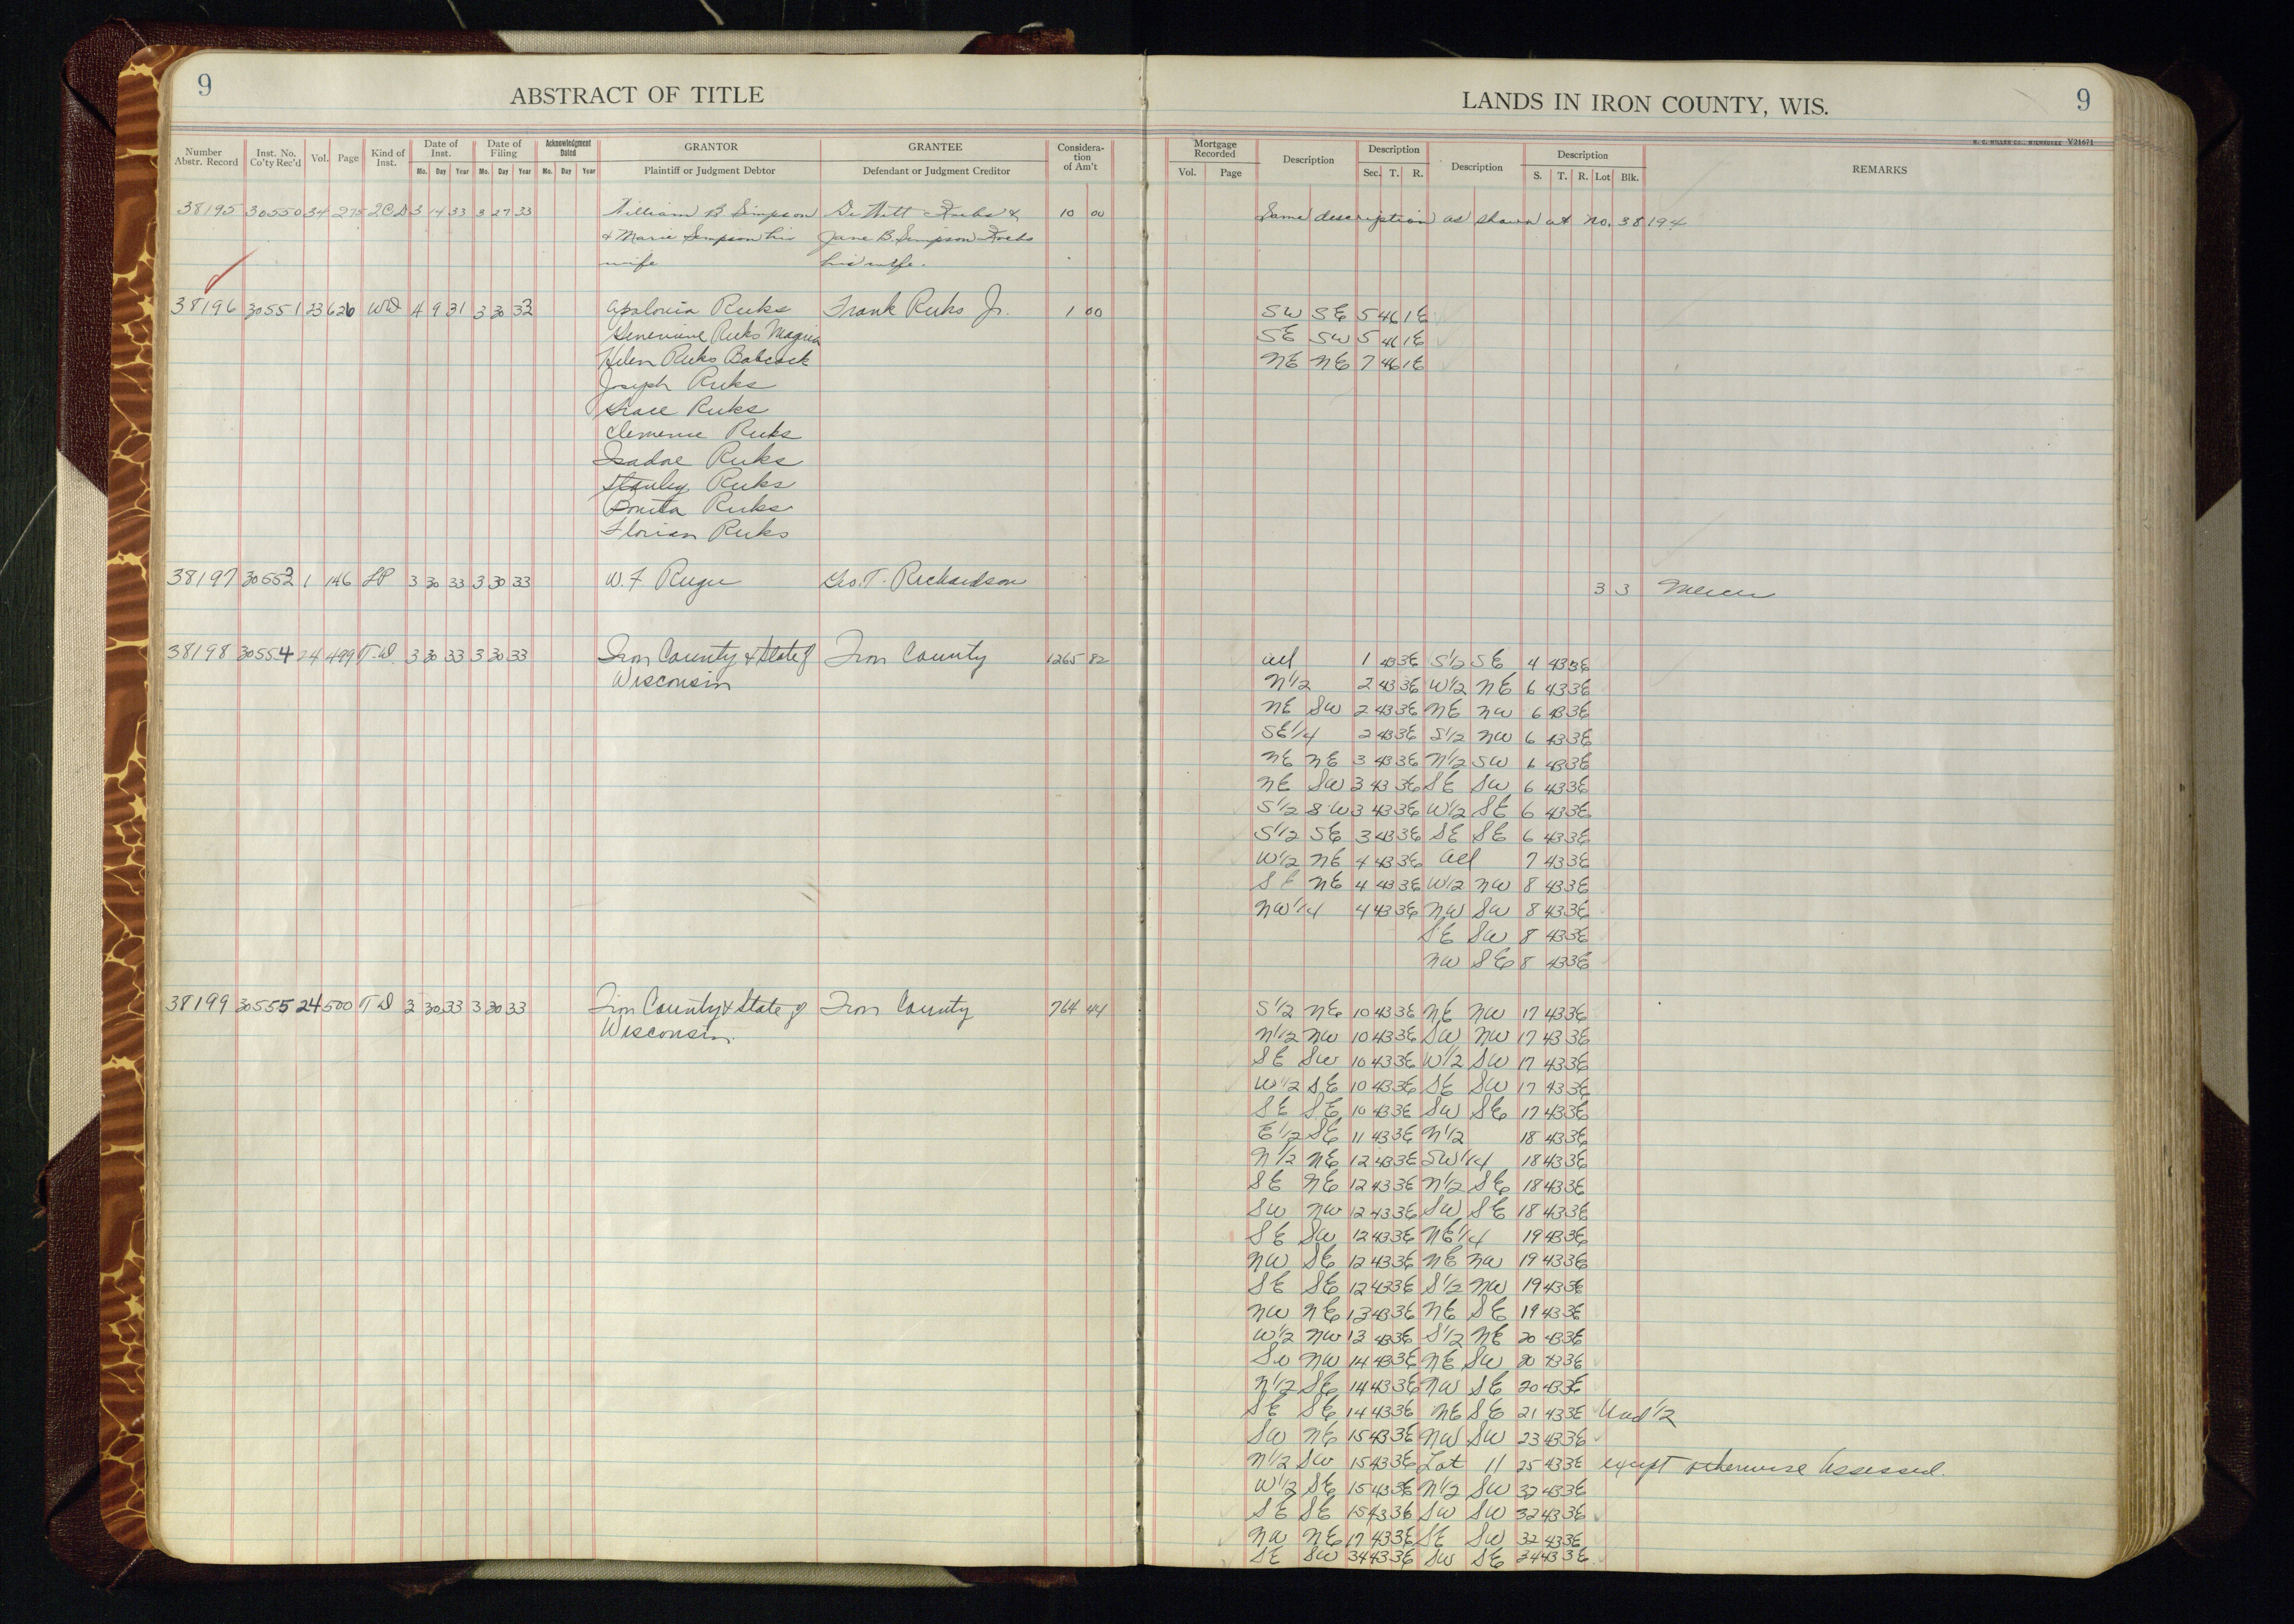 9
ABSTRACT OF TITLE
Number Abstr. Record
Inst. No. Co'ty Rec'd
Vol.
Page
Kind of Inst.
Date of Inst.
Mo. Day Year
Date of Filing
Mo. Day Year
Acknowledgment Dated
Mo. Day Year
GRANTOR
Plaintiff or Judgment Debtor
GRANTEE
Defendant or Judgment Creditor
Consideration of Am't
38195 30550 34 275 QCD 3 14 33 3 27 33 William B Simpson De Witt Krebs & 10 00
& Marie Simpson his Jane B. Simpson Krebs
wife his wife.
38196 30551 23 626 WD 4 9 31 3 30 33 Apalonia Ruks Frank Ruks Jr. 1 00
Genevieve Ruks
Helen Ruks Babcock
Joseph Ruks
Grace Ruks
Clemence Ruks
Isadore Ruks
Stanley Ruks
Bonita Ruks
Florian Ruks
38197 30552 1 146 LP 3 30 33 3 30 33 W. F. Geo. T. Richardson
38198 30554 24 499 T.D. 3 30 33 3 30 33 Iron County & State of Iron County 1265 82
Wisconsin
38199 30555 24 500 TD 3 30 33 3 30 33 Iron County & State of Iron County 764 44
Wisconsin.
LANDS IN IRON COUNTY, WIS.
9
H. C. MILLER CO., MILWAUKEE V21671
Mortgage Recorded
Vol. Page
Description
Description
Sec. T. R.
Description
Description
S. T. R. Lot Blk.
REMARKS
Same description as shown at no. 38194
SW SE 5 46 1E
SE SW 5 46 1E
NE NE 7 46 1E
3 3 Mercer
all 1 43 3E S1/2 SE 4 43 3E
N1/2 2 43 3E W1/2 NE 6 43 3E
NE SW 2 43 3E NE NW 6 43 3E
SE1/4 2 43 3E S1/2 NW 6 43 3E
NE NE 3 43 3E N1/2 SW 6 43 3E
NE SW 3 43 3E SE SW 6 43 3E
S1/2 SW 3 43 3E W1/2 SE 6 43 3E
S1/2 SE 3 43 3E SE SE 6 43 3E
W1/2 NE 4 43 3E all 7 43 3E
SE NE 4 43 3E W1/2 NW 8 43 3E
NW1/4 4 43 3E NW SW 8 43 3E
SE SW 8 43 3E
NW SE 8 43 3E
S1/2 NE 10 43 3E NE NW 17 43 3E
N1/2 NW 10 43 3E SW NW 17 43 3E
SE SW 10 43 3E W1/2 SW 17 43 3E
W1/2 SE 10 43 3E SE SW 17 43 3E
SE SE 10 43 3E SW SE 17 43 3E
E1/2 SE 11 43 3E N1/2 18 43 3E
N1/2 NE 12 43 3E SW1/4 18 43 3E
SE NE 12 43 3E N1/2 SE 18 43 3E
SW NW 12 43 3E SW SE 18 43 3E
SE SW 12 43 3E NE1/4 19 43 3E
NW SE 12 43 3E NE NW 19 43 3E
SE SE 12 43 3E S1/2 NW 19 43 3E
NW NE 13 43 3E NE SE 19 43 3E
W1/2 NW 13 43 3E S1/2 NE 20 43 3E
SW NW 14 43 3E NE SW 20 43 3E
N1/2 SE 14 43 3E NW SE 20 43 3E
SE SE 14 43 3E NE SE 21 43 3E Und 1/2
SW NE 15 43 3E NW SW 23 43 3E
N1/2 SW 15 43 3E Lot 11 25 43 3E except otherwise Assessed.
W1/2 SE 15 43 3E N1/2 SW 32 43 3E
SE SE 15 43 3E SW SW 32 43 3E
NW NE 17 43 3E SE SW 32 43 3E
SE SW 34 43 3E SW SE 34 43 3E